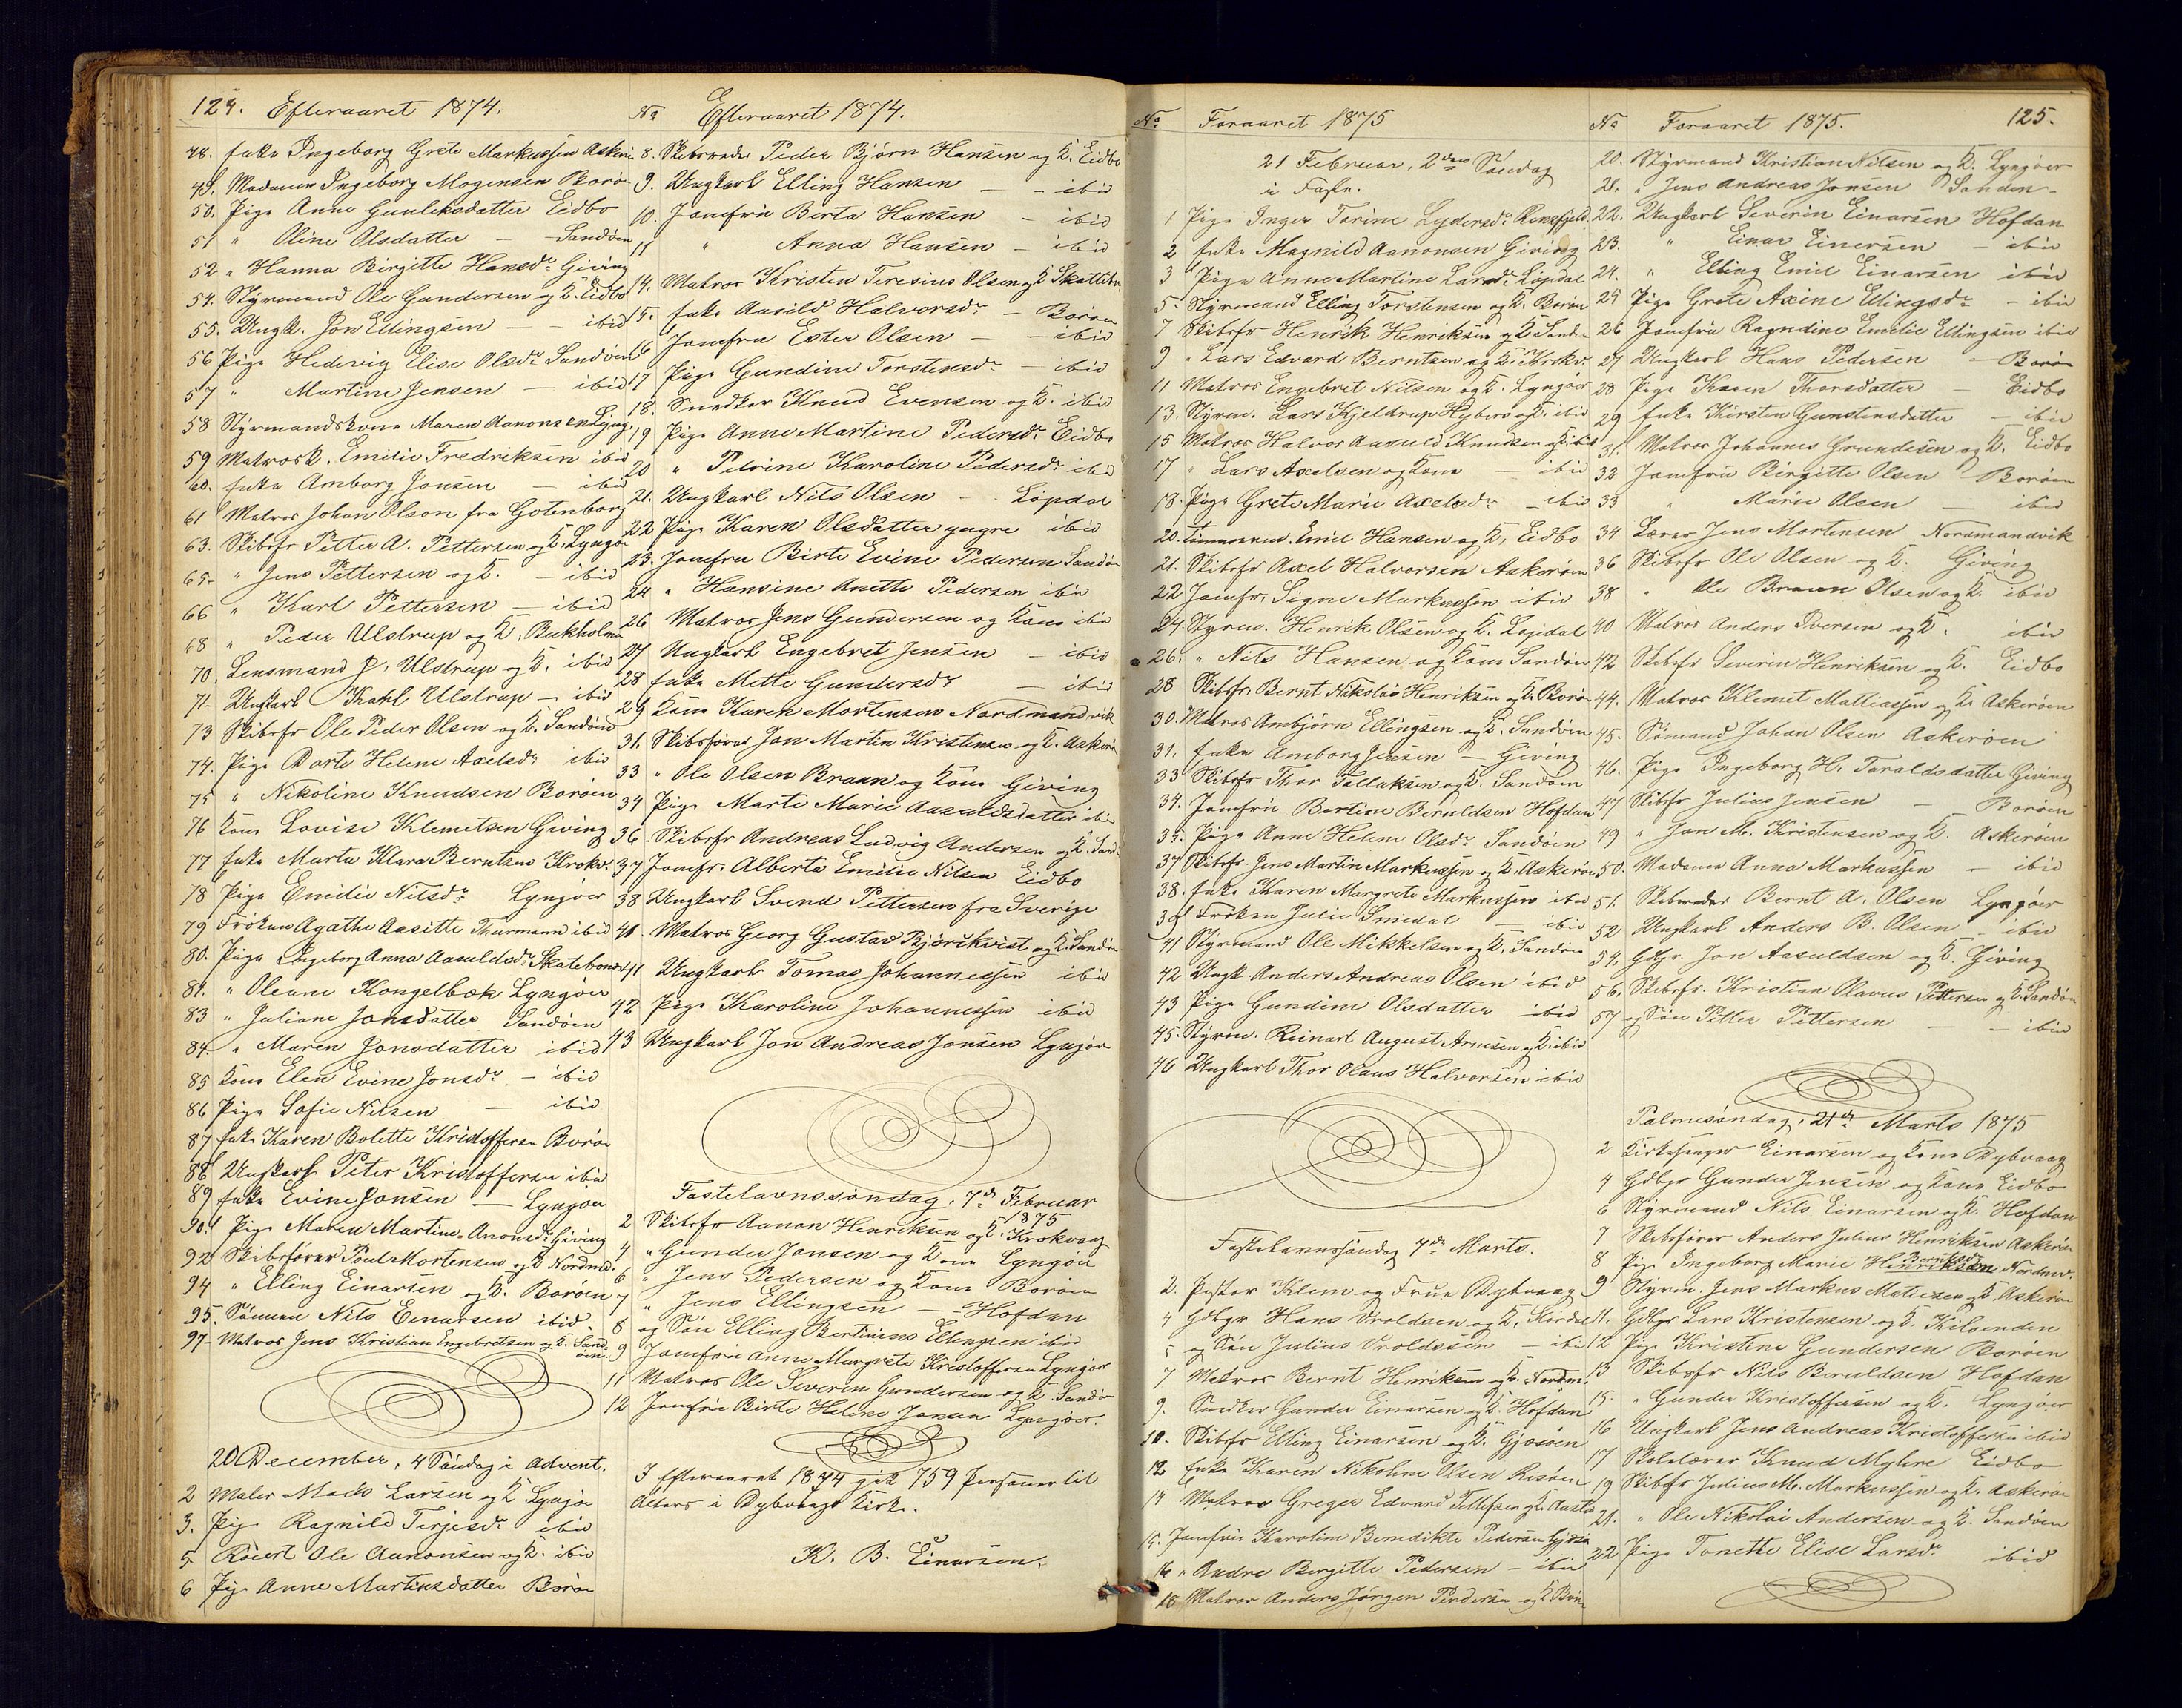 124. Efteraaret 1874.
48. Enke Ingeborg Grete Markussen Askerø
49. Madamm Ingeborg Mogensen Borøen
50. Pige Anne Gunleksdatter Eidbo
51 " Oline Olsdatter — Sandøen
52 " Hanna Birgitte Hansdr. Giving
54. Styrmand Ole Gundersen og K. Eidbo
55. Ungk. Jon Ellingsen — ibid
56 Pige Hedevig Elise Olsdr. Sandøen
57 " Martine Jensen — ibid
58 Styrmandskone Maren Aanonsen Lyng.
59 Matrosk. Emilie Fredriksen ibid
60. Enke Amborg Jonsen — ibid
61 Matros Johan Olson fra Gotenborg
63. Skibsfr Petter A. Pettersen og K. Lyngør
65- " Jens Pettersen og K. — ibid
66 " Karl Pettersen — ibid
68 " Peder Ulstrup og K. Buskholmen
70. Lensmand P. Ulstrup og K. ibid
71- Ungkarl Karl Ulstrup — ibid
73 Skibsfr Ole Peder Olsen og K. Sandøen
74. Pige Dorte Helene Axelsdr. ibid
75 " Nikoline Knudsen Borøen
76 Kone Lovise Klemetsen Giving
77 Enke Marta Klara Berntsen Krokv.
78 Pige Emilie Nilsdr. Lyngøer
79 Frøken Agathe Aasitte Thurmann ibid
80. Pige Ingeborg Anna Aasuldsdr. Skatebonde
81. " Oleane Kongelbæk Lyngøer
83 " Juliane Jonsdatter Sandøen
84. " Maren Jonsdatter ibid
85 Kone Elen Evine Jonsdr. — ibid
86 Pige Sofie Nilsen — ibid
87 Enke Karen Bolette Kristoffersen Borøe
88 Ungkarl Peter Kristoffersen ibid
89 Enke Evine Jonsen — Lyngøer
90. Pige Maren Martine Anonsdr. Giving
92 Skibsfører Poul Mortensen og K Nordmd.
94 " Elling Einarsen og K. Borøen
95. Sømann Nils Einarsen ibid.
97- Matros Jens Kristian Engebretsen og K. Sand-
øen
20 December, 4 Søndag i Advent.
2 Maler Mads Larsen og K Lyngør
3. Pige Ragnild Terjesdr. ibid
5. Ole Aanonsen og K. ibid
6 Pige Anne Martinsdatter Borøe
No Efteraaret 1874.
8. Skibsreder Peder Bjørn Hansen og K. Eidbo
9. Ungkarl Elling Hansen — ibid
10. Jomfru Birta Hansen — ibid
11 " Anna Hansen — ibid
14. Matros Kristen Teresius Olsen og K Skattebo.
15. Enke Aasild Halvorsdr. — Borøen
16 Jomfru Ester Olsen — ibid
17 Pige Gundine Torstensdr. — ibid
18. Snedker Knud Evensen og K. ibid
19 Pige Anne Martine Pedersdr. Eidbo
20 " Petrine Karoline Pedersdr. ibid
21. Ungkarl Nils Olsen — Løpdal
22 Pige Karen Olsdatter yngre ibid
23. Jomfru Birte Evine Pedersen Sandøen
24 " Hansine Anette Pedersen ibid
26 Matros Jens Gundersen og Kone ibid
27 Ungkarl Engebret Jensen — ibid
28 Enke Mette Gundersdr. — ibid
29 Kone Karen Mortensen Nordmandvik
31. Skibsfører Jon Martin Kristensen og K. Askerø
33 " Ole Olsen Braun og Kone Giving
34 Pige Marte Marie Aasuldsdatter ibid
36. Skibsfr Andreas Ludvig Andersen og K. Sand.
37 Jomfr. Alberta Emilie Nilsen Eidbo
38 Ungkarl Svend Pettersen fra Sverige
40. Matros Georg Gustav Bjørkkvist og K. Sandøn
41 Ungkarl Tomas Johannessen ibid
42 Pige Karoline Johannessen ibid
43 Ungkarl Jon Andreas Jonsen Lyngør
Fastelavnssøndag, 7de Februar
1875
2 Skibsfr Aanon Henriksen og K. Krokvaag
4 " Gunder Jonsen og Kone Lyngør
6 " Jens Pedersen og Kone Borøen
7 " Jens Ellingsen — Hofdan
8 og Søn Elling Bertinius Ellingsen ibid
9 Jomfrue Anne Margrete Kristoffersen Lyngør
11 Matros Ole Severin Gundersen og K Sandøn
12 Jomfru Birte Helene Jonsen Lyngøer.
I Efteraaret 1874 gik 759 Personer til
Alters i Dybvaags Kirke.
K. B. Einarsen.
No Foraaret 1875
21 Februar, 2den Søndag
i Faste.
1 Pige Inger Tarine Lydersdr. Rensfjeld
2 Enke Magnild Aanonsen Giving
3 Pige Anne Martine Larsdr. Løpdal
5 Styrmand Elling Torstensen og K. Borøen
7 Skibsfr Henrik Henriksen og K Sandøn
9 " Lars Edvard Berntsen og K. Krokv.
11 Matros Engebret Nilsen og K. Lyngøer
13. Styrm. Lars Kjeldrup Hybers og K. ibid
15 Matros Halvor Aasuld Knudsen og K. ibid
17 " Lars Axelsen og Kone — ibid
18. Pige Grete Marie Axelsdr. — ibid
20. Tømmermd. Emil Hansen og K. Eidbo
21. Skibsfr Axel Halvorsen Askerøen
22 Jomfr. Signe Markussen ibid
24 Styrm. Henrik Olsen og K. Løpdal
26. " Nils Hansen og Kone Sandøen
28 Skibsfr. Bernt Nikolai Henriksen og K. Borøe
30. Matros Ambjørn Ellingsen og K. Sandøen
31. Enke Amborg Jensen — Giving
33 Skibsfr Thor Tellaksen og K. Sandøen
34. Jomfru Bertine Beruldsen Hofdan
35. Pige Anne Helene Olsdr. Sandøen
37 Skibsfr. Jens Martin Markussen og K. Askerøen
38. Enke Karen Margrete Markussen ibid
39 Frøken Julie Smedal — ibid
41 Styrmand Ole Mikkelsen og K. Sandøen
42 Ungk. Anders Andreas Olsen ibid
43 Pige Gundine Olsdatter ibid
45. Styrm. Reinart August Arnesen og K. ibid
46 Ungkarl Thor Olaus Halvorsen ibid
Fastelavnssøndag 7de Marts.
2. Pastor Klem og Frue Dybvaag
4 Gdbgr Hans Vroldsen og K.
5 og Søn Julius Vroldsen — ibid
7 Matros Bernt Henriksen og K. Nordm.
9. Snedker Gunder Einarsen og K. Hofdan
10. Skibsfr Elling Einarsen og K. Gjøsøen
12 Enke Karen Nikoline Olsen Risøen
14 Matros Gregers Edvard Tellefsen og K.
15. Jomfrue Karoline Benedikte Pedersen Gjøsø
16 " Andrea Bergitte Pedersen — ibid
18 Matros Anders Jørgen Pedersen og K Borø
No Foraaret 1875. 125.
20. Styrmand Kristian Nilsen og K. Lyngøer
21. " Jens Andreas Jonsen Sandøn
22. Ungkarl Severin Einarsen Hofdan
23. " Einar Einersen — ibid
24. " Elling Emil Einarsen ibid
25 Pige Grete Axine Ellingsdr. — ibid
26 Jomfru Ragndine Emilie Ellingsen ibid
27 Ungkarl Hans Pedersen — Borøn
28 Pige Karen Thorsdatter — Eidbo
29 Enke Kirsten Gunstensdatter — ibid
31. Matros Johannes Grundesen og K. Eidbo
32 Jomfru Birgitte Olsen Borøen
33 " Marie Olsen — ibid
34 Lærer Jens Mortensen Nordmandvik
36 Skibsfr Ole Olsen og K. Giving
38 " Ole Braun Olsen og K. ibid
40 Matros Anders Iversen og K. ibid
42 Skibsfr Severin Henriksen og K. Eidbo
44. Matros Klemet Mattiassen og K. Askerøen
45. Sømand Johan Olsen Askerøen
46. Pige Ingeborg H. Taraldsdatter Giving
47 Skibsfr Julius Jensen Borøen
49 " Jon M. Kristensen og K. Askerøen
50. Madamm Anna Markussen — ibid
51. Skibsreder Bernt A. Olsen Lyngøer
52 Ungkarl Anders B. Olsen — ibid
54. Gdbgr. Jon Aasuldsen og K. Giving
56. Skibsfr. Kristian Olavus Pettersen og K. Sandøn
57 og Søn Petter Pettersen — ibid
Palmesøndag, 21de Marts 1875
2 Kirkesanger Einarsen og Kone Dybvaag
4 Gdbgr Gunder Jensen og Kone Eidbo
6 Styrmand Nils Einarsen og K. Hofdan
7 Skibsfører Anders Julius Henriksen Askerøen
8 Pige Ingeborg Marie Henriksen Nordmv.
9 Styrm. Jens Markus Matiesen og K. Askerøn
11. Gdbgr Lars Kristensen og K. Kilsenden
12 Pige Kristine Gundersen Borøen
13 Skibsfr Nils Beruldsen Hofdan
15. " Gunder Kristoffersen og K. Lyngøer
16 Ungkarl Jens Andreas Kristoffersen ibid
17 Skolelærer Knud Myhre Eidbo
19 Skibsfr Julius M. Markussen og K. Askerøn
21. " Ole Nikolai Andersen og K. Sandøen
22 Pige Tonette Elise Larsdr. ibid